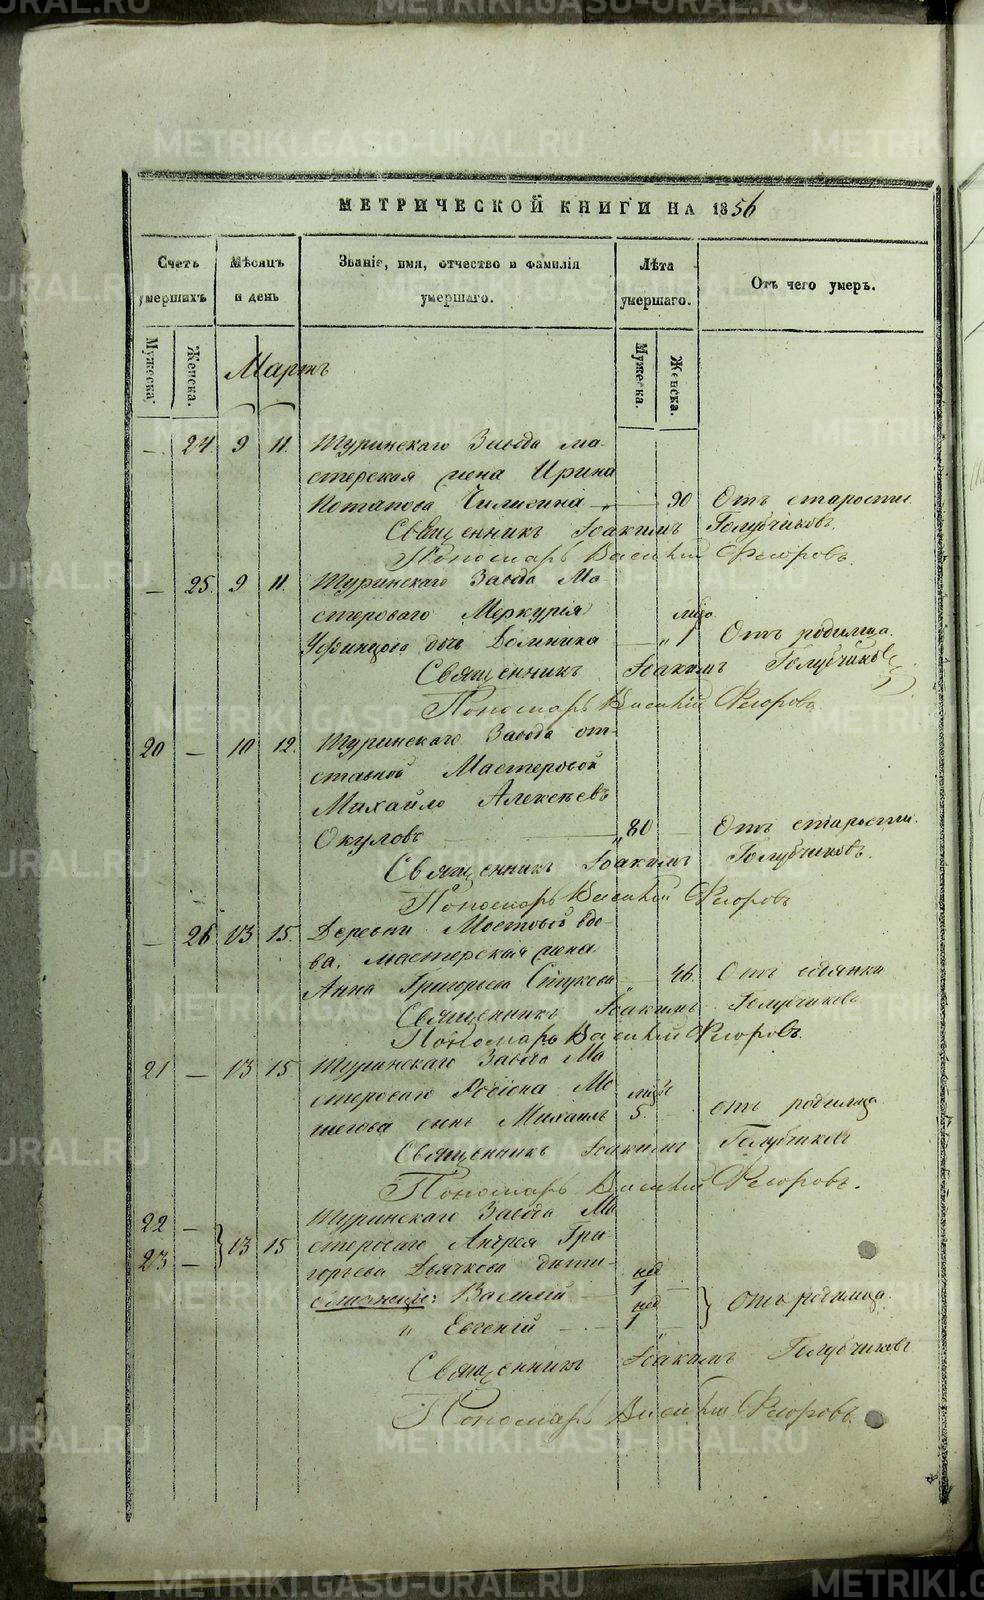 METRIKI.GASO-URAL.RU
МЕТРИЧЕСКОЙ КНИГИ НА 1856
Счетъ умершихъ
Мѣсяцъ и день
Званіе, имя, отчество и фамилія умершаго.
Лѣта умершаго.
Отъ чего умеръ.
Мужеска.
Женска.
Мужеска.
Женска.
Мартъ
— 24. 9 11. Туринскаго Завода ма-
стерская жена Ирина
Потапова Чилигина „ — 90 Отъ старости
Священникъ Іоакимъ Голубчиковъ.
Пономарь Василій Флоровъ.
— 25. 9 11. Туринскаго Завода Ма-
стероваго Меркурія
Уфинцова дочь Домника — „ 1 Отъ родимца.
Священникъ Іоакимъ Голубчиковъ
Пономарь Василій Флоровъ
20 — 10 12. Туринскаго Завода от-
ставной Мастеровой
Михайло Алексѣевъ
Окуловъ — 80 — Отъ старости.
Священникъ Іоакимъ Голубчиковъ.
Пономарь Василій Флоровъ
— 26 13 15. Деревни Мостовой вдо-
ва, мастерская жена
Анна Григорьева Стукова — 46. Отъ водянки
Священникъ Іоакимъ Голубчиковъ
Пономарь Василій Флоровъ.
21 — 13 15 Туринскаго Завода Ма-
стероваго Родіона
сынъ Михаилъ 5. отъ родимца
Священникъ Іоакимъ Голубчиковъ
Пономарь Василій Флоровъ.
22 —
23 — 13 15 Туринскаго Завода Ма-
стероваго Андрея Гри-
горьева Дьячкова дѣти-
близнецы: Василій — нед 1
и Евгеній — нед 1 Отъ родимца.
Священникъ Іоакимъ Голубчиковъ
Пономарь Василій Флоровъ.